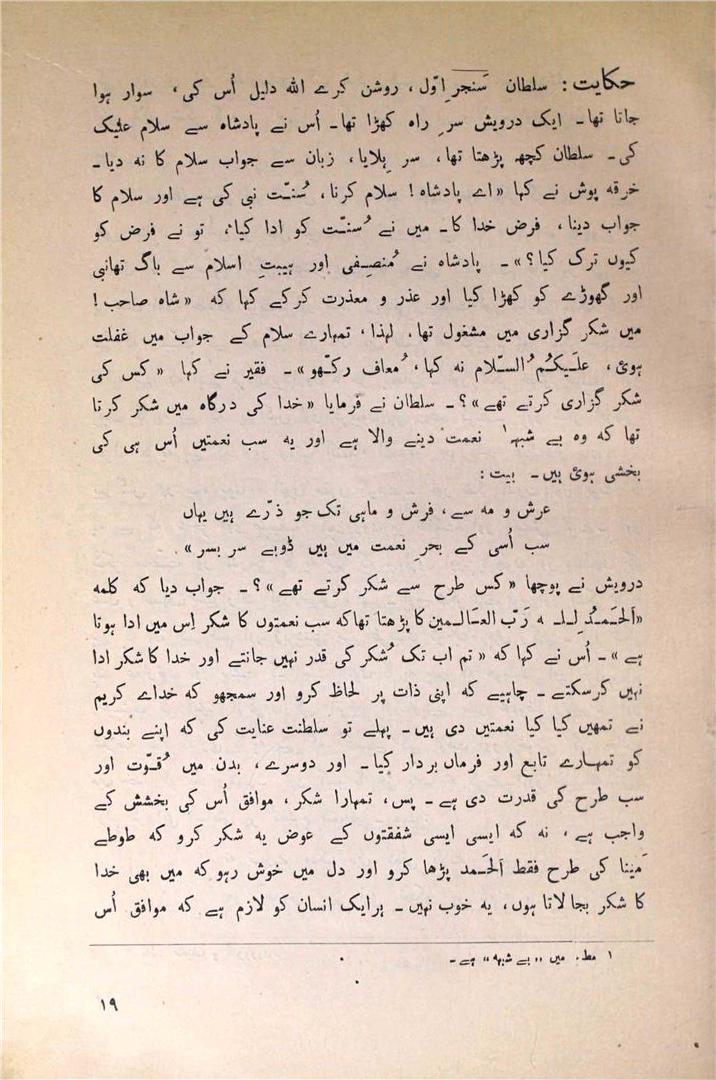 حکایت: سلطان سَنجرِ اوّل، روشن کرے اللہ دلیل اُس کی، سوار ہوا
جاتا تھا۔ ایک درویش سرِ راہ کھڑا تھا۔ اُس نے پادشاہ سے سلام علیک
کی۔ سلطان کچھ پڑھتا تھا، سر ہلایا، زبان سے جواب سلام کا نہ دیا۔
خرقہ پوش نے کہا «اے پادشاہ! سلام کرنا، سُنّت نبی کی ہے اور سلام کا
جواب دینا، فرض خدا کا۔ میں نے سُنّت کو ادا کیا، تو نے فرض کو
کیوں ترک کیا؟»۔ پادشاہ نے مُنصِفی اور ہیبتِ اسلام سے باگ تھانبی
اور گھوڑے کو کھڑا کیا اور عذر و معذرت کرکے کہا کہ «شاہ صاحب!
میں شکر گزاری میں مشغول تھا، لہٰذا، تمہارے سلام کے جواب میں غفلت
ہوئ، علَیکُم السّلام نہ کہا، مُعاف رکھو»۔ فقیر نے کہا «کس کی
شکر گزاری کرتے تھے»؟۔ سلطان نے فرمایا «خدا کی درگاہ میں شکر کرتا
تھا کہ وہ بے شبہہ۱ نعمت دینے والا ہے اور یہ سب نعمتیں اُس ہی کی
بخشی ہوئ ہیں۔ بیت:
عرش و مہ سے، فرش و ماہی تک جو ذرّے ہیں یہاں
سب اُسی کے بحرِ نعمت میں ہیں ڈوبے سر بسر»
درویش نے پوچھا «کس طرح سے شکر کرتے تھے»؟۔ جواب دیا کہ کلمہ
«اَلحَمدُ لِلّٰہ رَبّ العالمین کا پڑھتا تھا کہ سب نعمتوں کا شکر اِس میں ادا ہوتا
ہے»۔ اُس نے کہا کہ «تم اب تک شُکر کی قدر نہیں جانتے اور خدا کا شکر ادا
نہیں کرسکتے۔ چاہیے کہ اپنی ذات پر لحاظ کرو اور سمجھو کہ خداے کریم
نے تمھیں کیا کیا نعمتیں دی ہیں۔ پہلے تو سلطنت عنایت کی کہ اپنے بندوں
کو تمہارے تابع اور فرماں بردار کیا۔ اور دوسرے، بدن میں قُوّت اور
سب طرح کی قدرت دی ہے۔ پس، تمہارا شکر، موافق اُس کی بخشش کے
واجب ہے، نہ کہ ایسی ایسی شفقتوں کے عوض یہ شکر کرو کہ طوطے
مَینا کی طرح فقط اَلحَمد پڑھا کرو اور دل میں خوش رہو کہ میں بھی خدا
کا شکر بجا لاتا ہوں، یہ خوب نہیں۔ ہر ایک انسان کو لازم ہے کہ موافق اُس
۱ مط. میں «بے شبہہ» ہے۔
۱۹